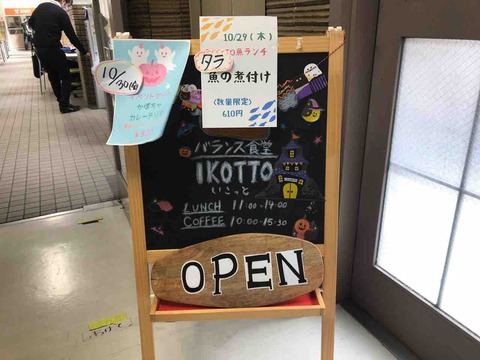 10/29(木)
IKOTTO魚ランチ
タラ
魚の煮付け
(数量限定)
610円
10/30(金)
かぼちゃ
バランス食堂
IKOTTO
いこっと
LUNCH 11:00-14:00
COFFEE 10:00-15:30
OPEN